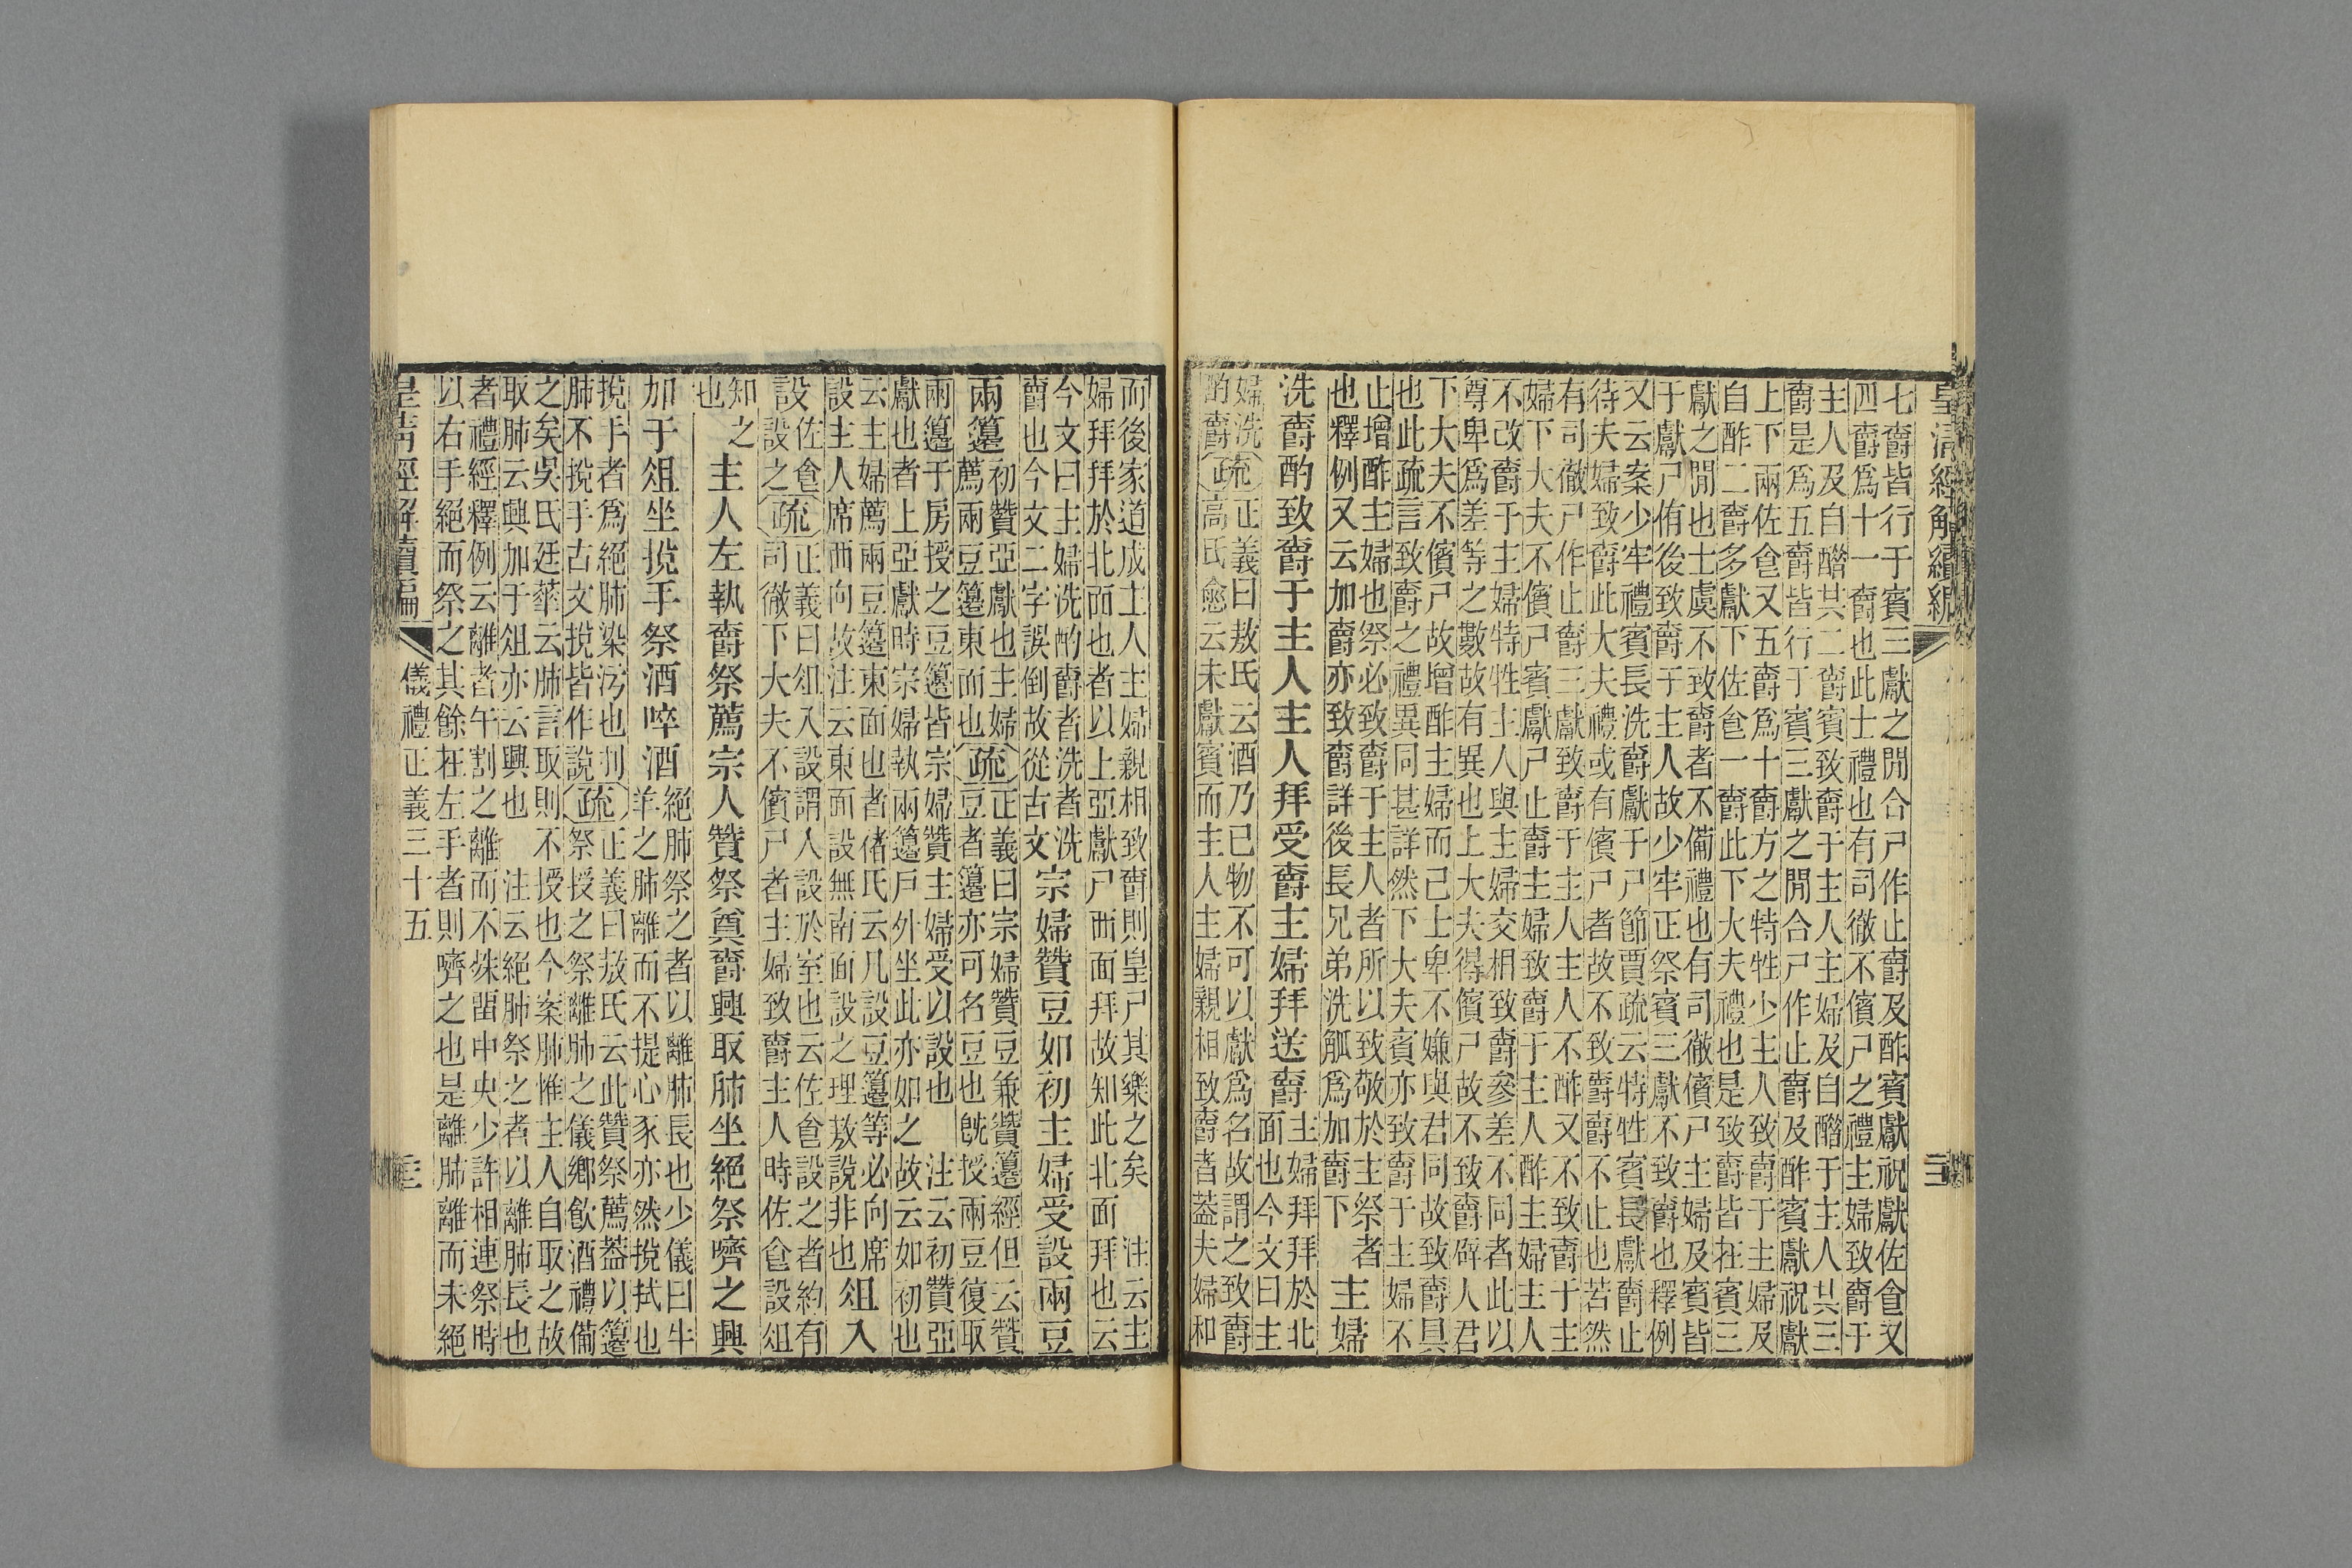 皇清經解續編
七爵皆行于賓三獻之閒合尸作止爵及酢賓獻祝獻佐食又
四爵爲十一爵也此士禮也有司徹不儐尸之禮主婦致爵于
主人及自醋其二爵賓致爵于主人主婦及自醋于主人其三
爵是爲五爵皆行于賓三獻之閒合尸作止爵及酢賓獻祝獻
上下兩佐食又五爵爲十爵方之特牲少主人致爵于主婦及
自酢二爵多獻下佐食一爵此下大夫禮也是致爵皆在賓三
獻之閒也士虞不致爵者不備禮也有司徹儐尸主婦及賓皆
于獻尸侑後致爵于主人故少牢正祭賓三獻不致爵也釋例
又云案少牢禮賓長洗爵獻于尸節賈疏云特牲賓長獻爵止
待夫婦致爵此大夫禮或有儐尸者故不致爵不止也若然
有司徹尸作止爵三獻致爵于主人主人不酢又不致爵于主
婦下大夫不儐尸賓獻尸止爵主婦致爵于主人酢主婦主人
不改爵于主婦特牲主人與主婦交相致爵參差不同者此以
尊卑爲差等之數故有異也上大夫得儐尸故不致爵辟人君
下大夫不儐尸故增酢主婦而已士卑不嫌與君同故致爵具
也此疏言致爵之禮異同甚詳然下大夫賓亦致爵于主婦不
止增酢主婦也祭必致爵于主人者所以致敬於主祭者
也釋例又云加爵亦致爵詳後長兄弟洗觚爲加爵下
主婦
洗爵酌致爵于主人主人拜受爵主婦拜送爵
主婦拜拜於北
面也今文曰主
婦洗
酌爵
疏
正義曰敖氏云酒乃己物不可以獻爲名故謂之致爵
高氏愈云未獻賓而主人主婦親相致爵者蓋夫婦和
而後家道成主人主婦親相致爵則皇尸其樂之矣 注云主
婦拜拜於北面也者以上亞獻尸西面拜故知此北面拜也云
今文曰主婦洗酌爵者洗者洗
爵也今文二字誤倒故從古文
宗婦贊豆如初主婦受設兩豆
兩籩
初贊亞獻也主婦
薦兩豆籩東面也
疏
正義曰宗婦贊豆兼贊籩經但云贊
豆者籩亦可名豆也旣授兩豆復取
兩籩于房授之豆籩皆宗婦贊主婦受以設也 注云初贊亞
獻也者上亞獻時宗婦執兩籩戶外坐此亦如之故云如初也
云主婦薦兩豆籩東面也者褚氏云凡設豆籩等必向席
設主人席西向故注云東面設無南面設之理敖說非也
俎入
設
佐食
設之
疏
正義曰俎入設謂入設於室也云佐食設之者約有
司徹下大夫不儐尸者主婦致爵主人時佐食設俎
知之
也
主人左執爵祭薦宗人贊祭奠爵興取肺坐絕祭嚌之興
加于俎坐挩手祭酒啐酒
絕肺祭之者以離肺長也少儀曰牛
羊之肺離而不提心豕亦然挩拭也
挩手者爲絕肺染汚也刌
肺不挩手古文挩皆作說
疏
正義曰敖氏云此贊祭薦蓋以籩
祭授之祭離肺之儀鄉飲酒禮備
之矣吳氏廷華云肺言取則不授也今案肺惟主人自取之故
取肺云興加于俎亦云興也 注云絕肺祭之者以離肺長也
者禮經釋例云離者午割之離而不殊畱中央少許相連祭時
以右手絕而祭之其餘在左手者則嚌之也是離肺離而未絕
皇清經解續編
儀禮正義三十五